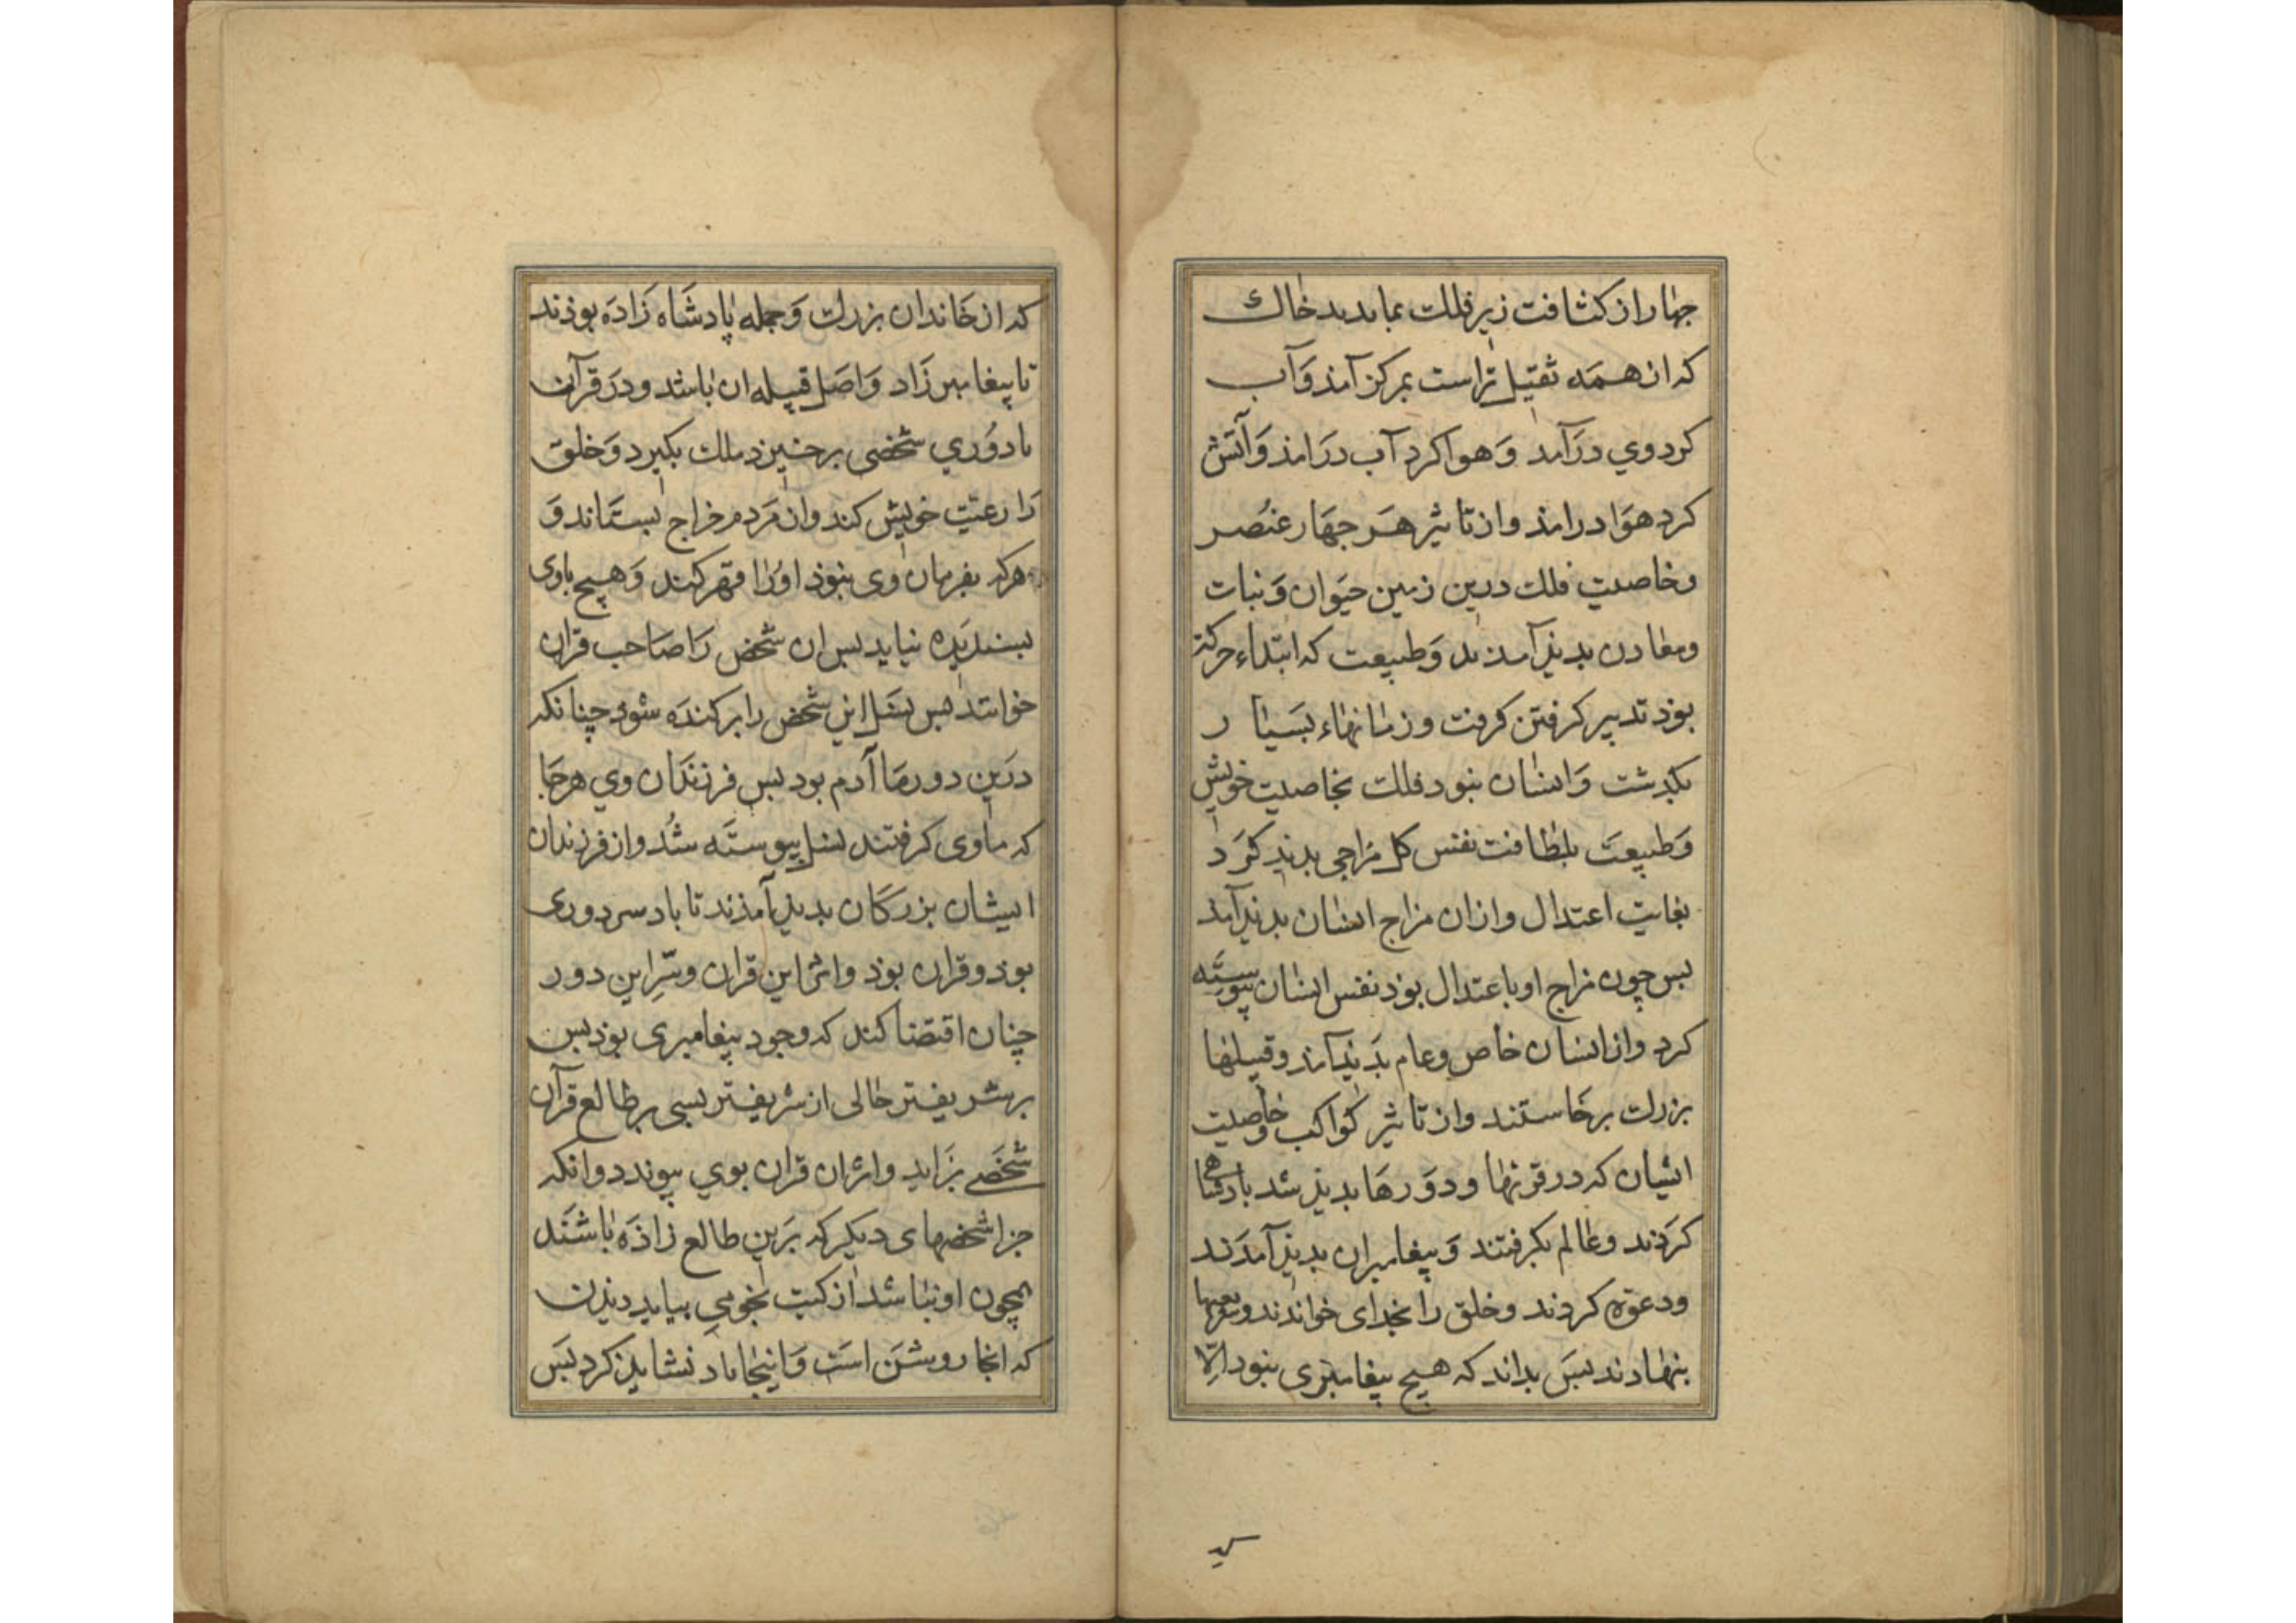 جهار از کثافت زیر فلک بماندند خاک
که از همه ثقیل تر است بمرکز آمذ وَآب
کرد وي درَآمد وَهوا کرد آب درَامذ وَآتش
کرد هوَا درامذ واز تاثیر هَر جهَار عنُصر
وخاصیت فلک درین زمین حیَوان وَنبات
ومعادن بدیذ آمذند وَطبیعت که ابتداء حرکة
بوذ تدبیر کرفتن کرفت وزمانهاء بسَیار
بکذشت وَانسان نبود فلک بخاصیت خویش
وَطبیعَت بلطافت نفس کل مزاجی بدیذ کرَد
بغایت اعتدال وازان مزاج انسان بدیذ آمذ
بس چون مزاج او باعتدال بوذ نفس انسان پیوستَه
کرد واز انسان خاص وعام بدَیذ آمذ وقبیلها
بزرک برخَاستند واز تاثیر کواکب وخاصیت
ایشان که در قرنها ودوَرهَا بدیذ شد بادشاهی
کرَدند وعالم بکرفتند وَپیغامبران بدیذ آمدَند
ودعوَة کردند وخلق را بخدای خواندند وشریعتها
بنهادند بسَ بداند که هیچ پیغامبرَی نبود اِلّا
که از خَاندان بزرک وَجمله پادشَاه زَادَه بوذند
تا پیغامبر زَاد وَاصَل قبیله ان باشد ودرَ قرآن
با دوُري شخصی برخیزد ملک بکیرد وَخلق
رَا رعیّت خویش کند واز مَردم خراج بستَاند وَ
هرکه بفرمان وی نبوذ اورُا قهر کند وَهیچ باوی
بسندیدَه نیاید بس ان شخص رَا صَاحب قران
خوانند بس نسَل این شخص را برکندَه شوذ چنانکه
درَین دور مَا آدم بود بس فرزندَان وي هرجَا
که ماوی کرفتند نسل پیوستَه شُد واز فرزندان
ایشان بزرکَان بدیذ آمذند تا باد سر دوری
بوذ وقران بوذ واثر این قران وسّرِ این دور
چنان اقتضا کند که وجود پیغامبری بوذ بس
برشریفتر حالی از شریفتر نسبی بر طالع قرآن
شخصَے بزَاید واثر ان قران بوي پیوندد وانکه
جز اشخصهای دیکر که برَین طالع زاذَه باشَند
همچون او نباشد از کتب نجومي بباید دیذن
که انجا روشَن است وَاینجا یاد نشاید کرد بسَ